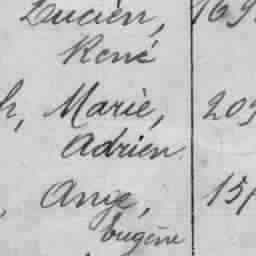 Lucien, 169
René
h, Marie, 203
Adrien
, Ange, 151
Eugène